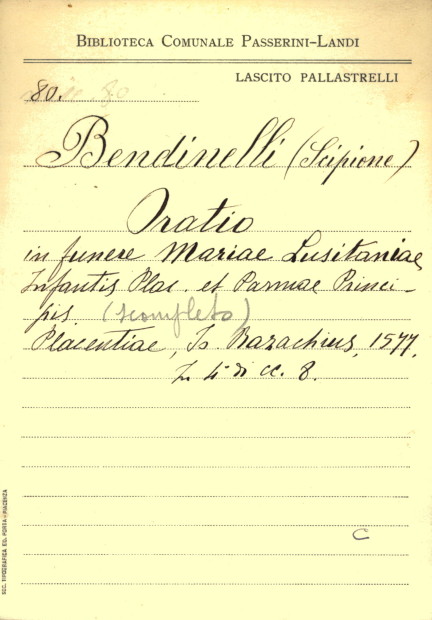 BIBLIOTECA COMUNALE PASSERINI-LANDI
LASCITO PALLASTRELLI
80.
Bendinelli (Scipione)
Oratio
in funere Mariae Lusitaniae
Infantis Plac. et Parmae Princi-
pis. (incompleto)
Placentiae, Io. Bazachius, 1577,
In 4° di cc. 8.
C
SOC. TIPOGRAFICA ED. PORTA - PIACENZA